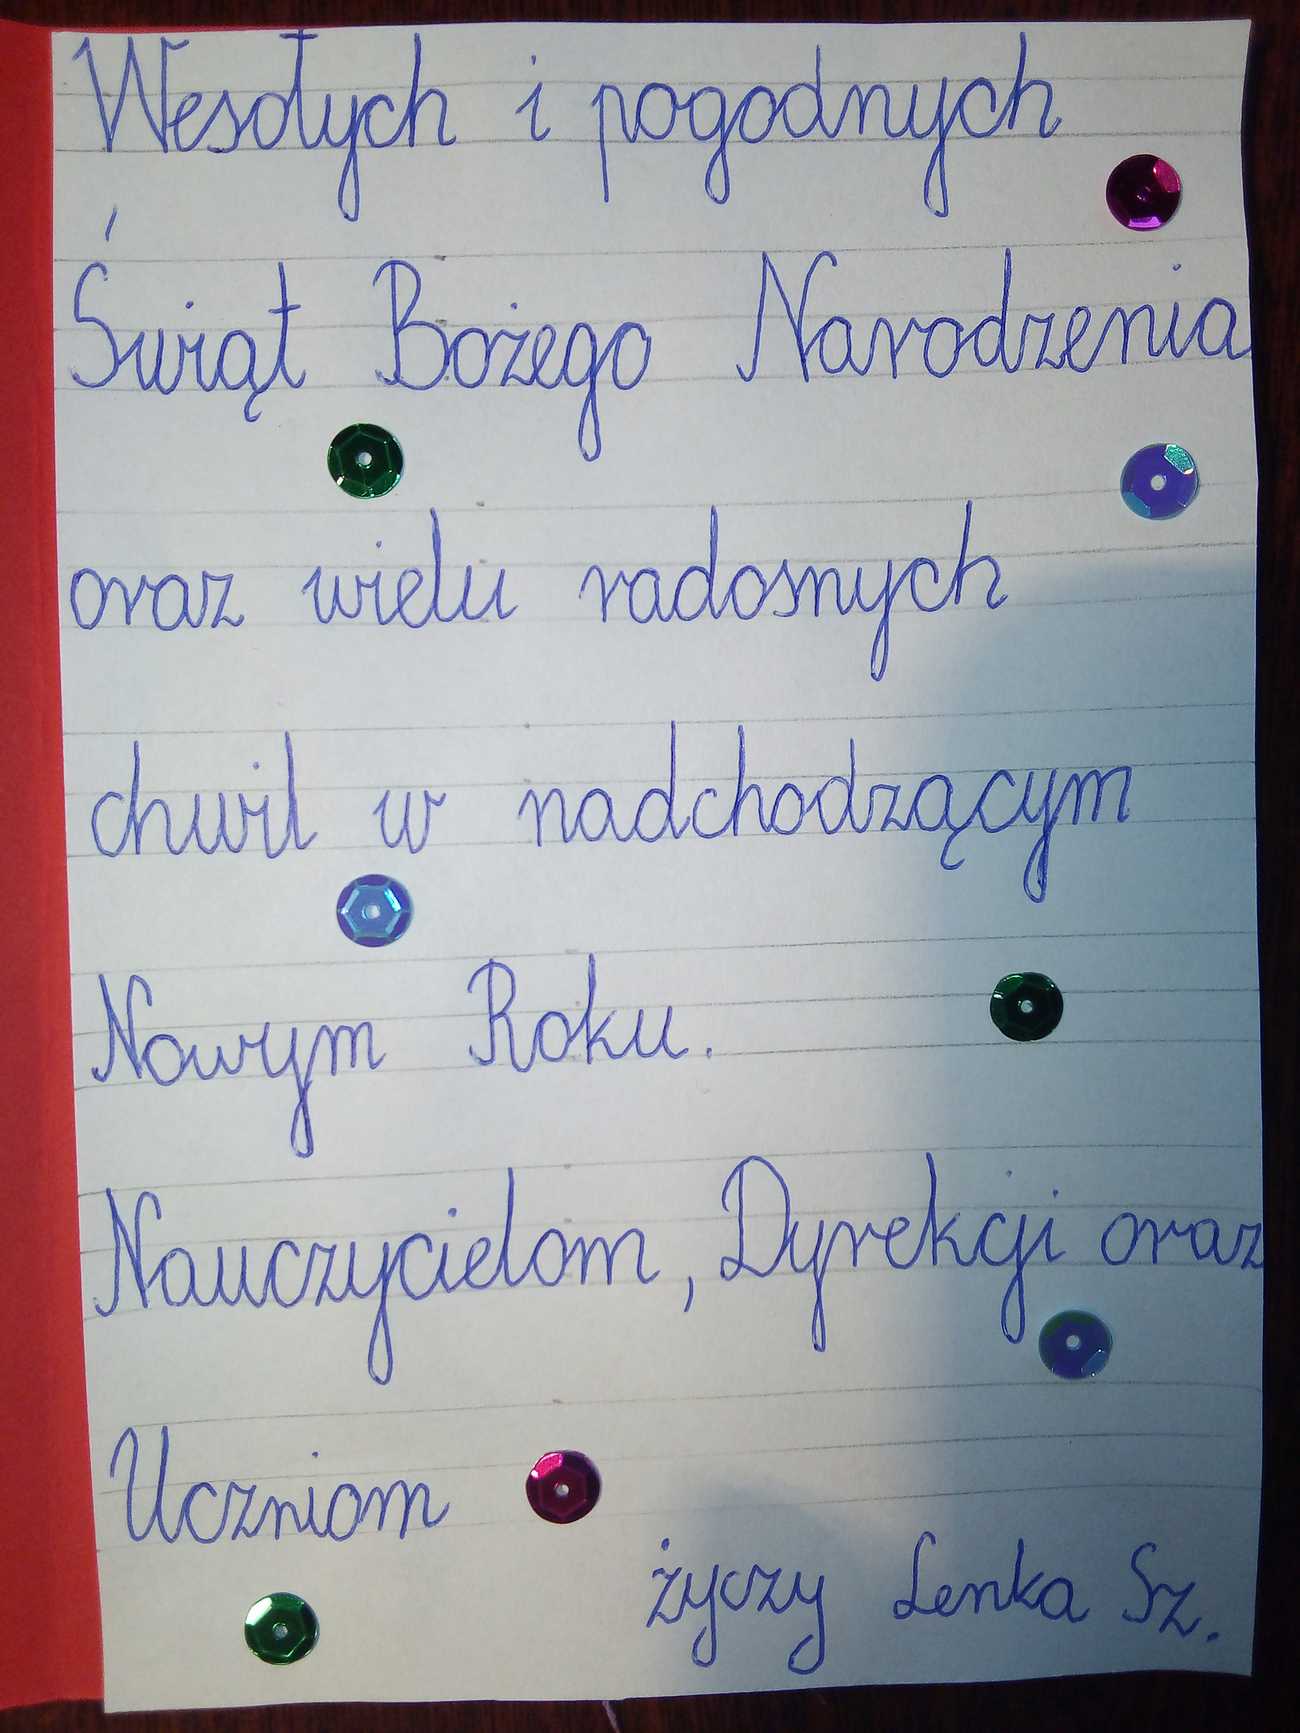 Wesołych i pogodnych
Świąt Bożego Narodzenia
oraz wielu radosnych
chwil w nadchodzącym
Nowym Roku.
Nauczycielom, Dyrekcji oraz
Uczniom
życzy Lenka Sz.